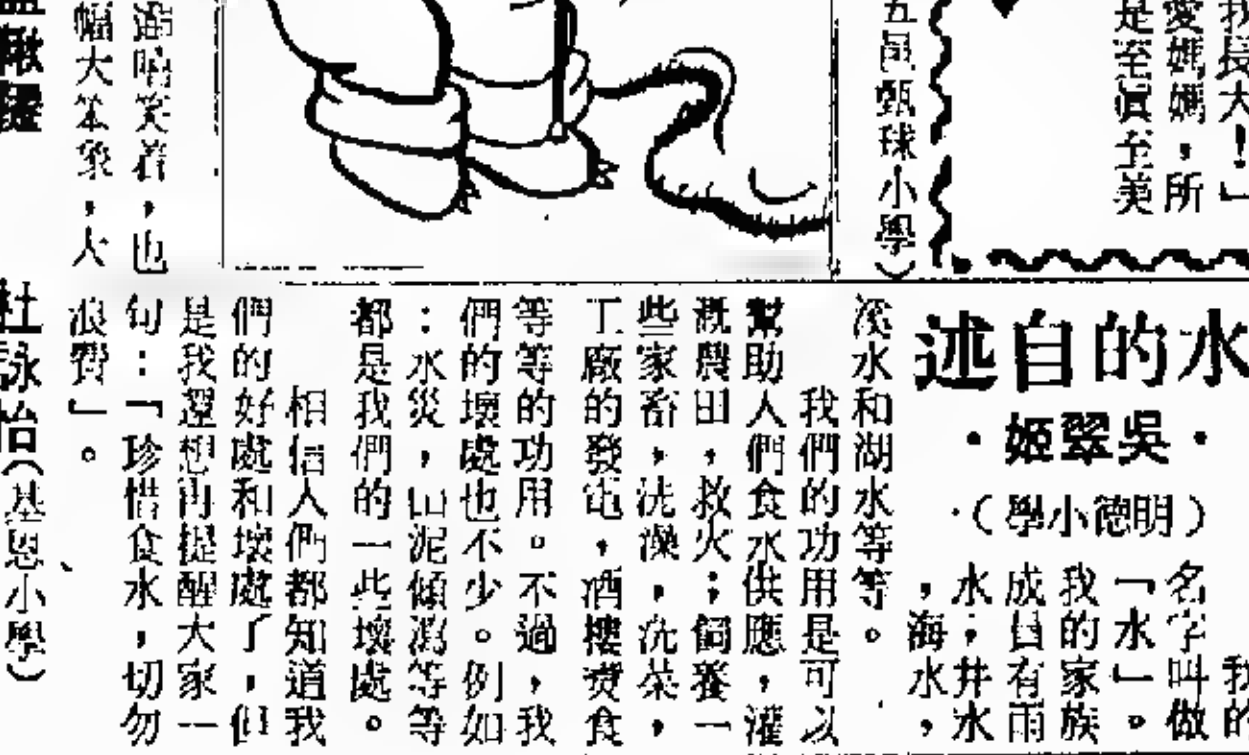 我長大！」
愛媽媽，所
是至眞至美
五邑甄球小學）
水的自述
·吳翠姬·
（明德小學）·
我的
名字叫做
「水」。
我的家族
成員有雨
水，井水
，海水，
溪水和湖水等等。
我們的功用是可以
幫助人們食水供應，灌
溉農田，救火；飼養一
些家畜，洗澡，洗菜，
工廠的發電，酒樓煑食
等等的功用。不過，我
們的壞處也不少。例如
：水災，山泥傾瀉等等
都是我們的一些壞處。
相信人們都知道我
們的好處和壞處了，但
是我還想再提醒大家一
句：「珍惜食水，切勿
浪費」。
嘻笑着，也
幅大笨象，大
杜詠怡（基恩小學）